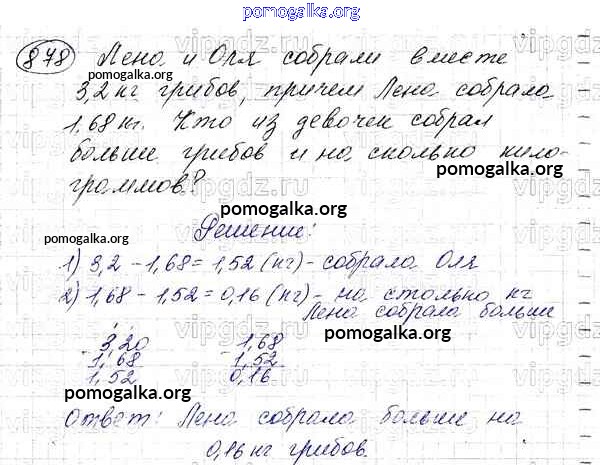 pomogalka.org
878 Лена и Оля собрали вместе
pomogalka.org
3,2 кг грибов, причем Лена собрала
1,68 кг. Кто из девочек собрал
больше грибов и на сколько кило-
pomogalka.org
граммов?
pomogalka.org
Решение:
pomogalka.org
1) 3,2 - 1,68 = 1,52 (кг) - собрала Оля
pomogalka.org
2) 1,68 - 1,52 = 0,16 (кг) - на столько кг
Лена собрала больше
pomogalka.org
- 3,20 - 1,68
1,68 1,52
1,52 0,16
pomogalka.org pomogalka.org
Ответ: Лена собрала больше на
0,16 кг грибов.
pomogalka.org